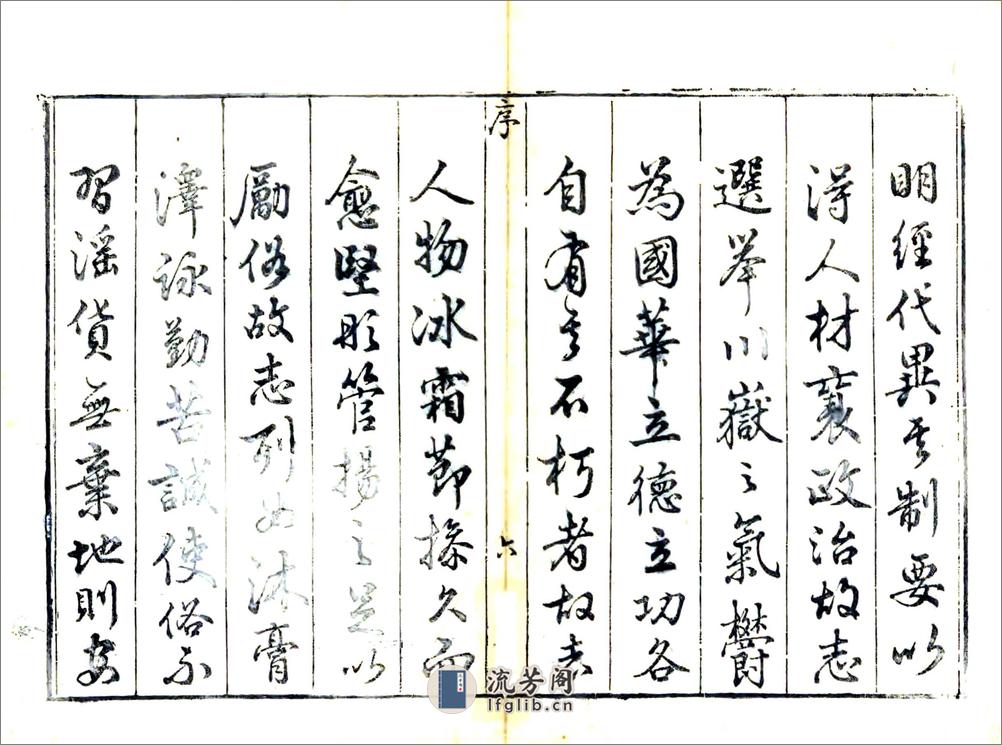 明經代異其制要以
得人材襄政治故志
選舉川嶽之氣欝
為國華立德立功各
自有其不朽者故志
序
六
人物冰霜節操久而
愈堅彤管揚之足以
勵俗故志列女沐膏
澤詠勤苦誠使俗不
習滛貨無棄地則安
流芳阁
lfglib.cn